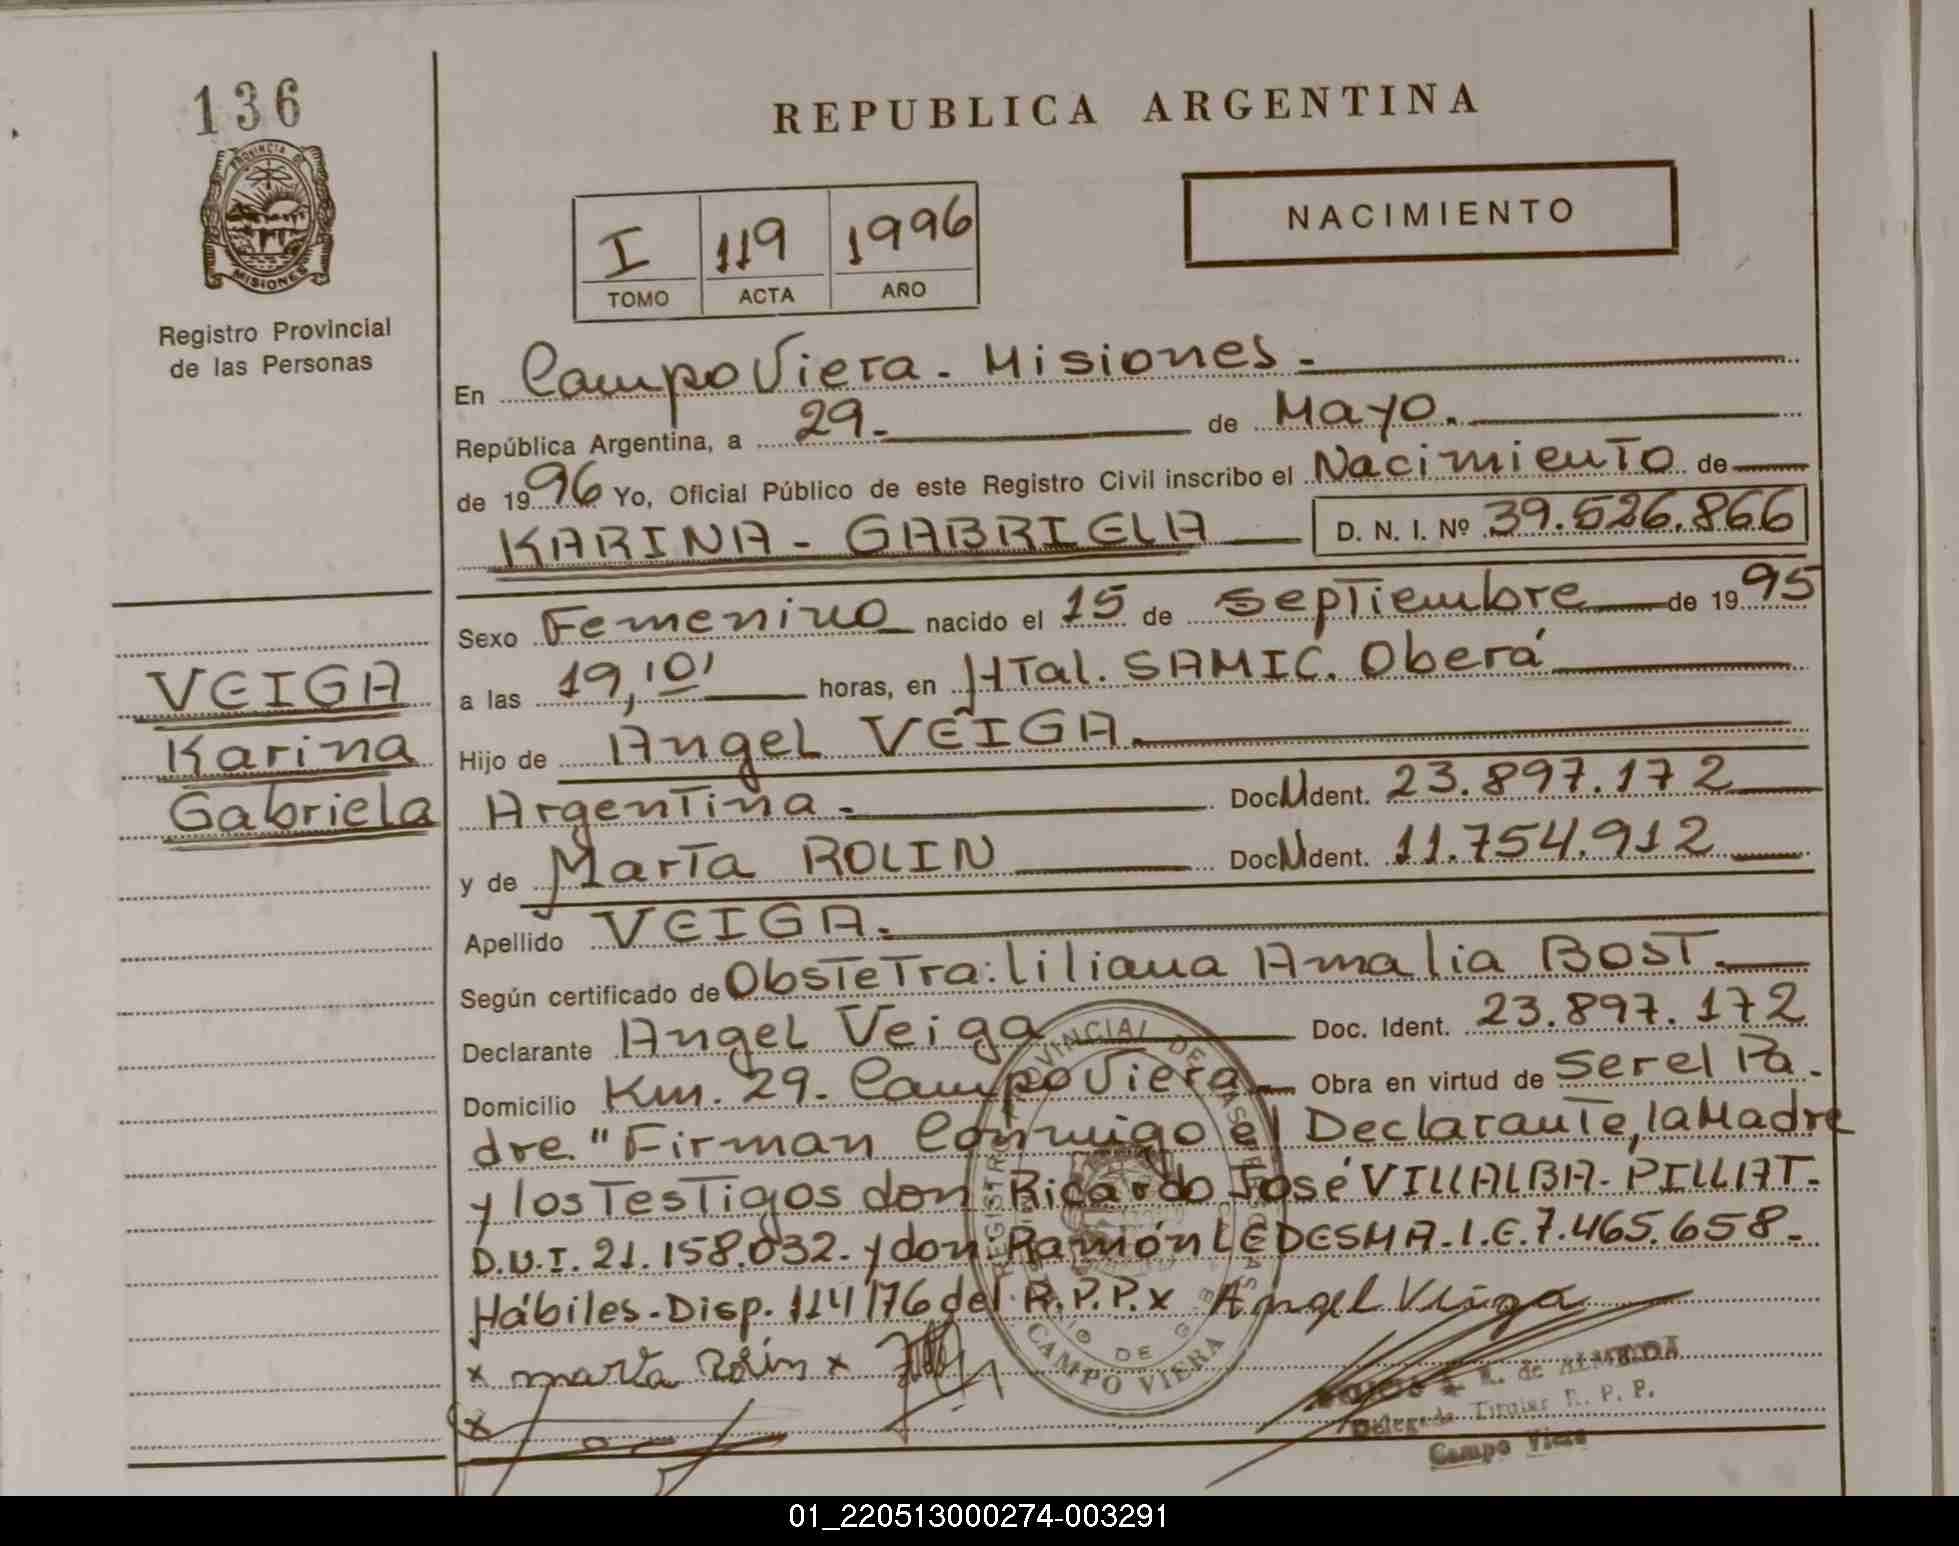 136
PROVINCIA DE
MISIONES
Registro Provincial
de las Personas
VEIGA
Karina
Gabriela
REPUBLICA ARGENTINA
I 119 1996
TOMO ACTA AÑO
NACIMIENTO
En Campo Viera - Misiones -
República Argentina, a 29 - de Mayo.
de 1996 Yo, Oficial Público de este Registro Civil inscribo el Nacimiento de
KARINA - GABRIELA D. N. I. Nº 39.526.866
Sexo Femenino nacido el 15 de Septiembre de 1995
a las 19,10' horas, en HTal. SAMIC. Oberá
Hijo de Angel VEIGA.
Argentina - Doc. Ident. 23.897.172
y de Marta ROLIN Doc. Ident. 11.754.912
Apellido VEIGA.
Según certificado de Obstetra: Liliana Amalia BOST.
Declarante Angel Veiga Doc. Ident. 23.897.172
Domicilio Km. 29. Campo Viera Obra en virtud de Ser el Pa-
dre. "Firman Conmigo el Declarante, la Madre
y los Testigos don Ricardo José VILLALBA - PILLAT-
D.U.I. 21.158.032 - y don Ramón LEDESMA - L.E. 7.465.658 -
Hábiles - Disp. 114/76 del R.P.P. x Angel Veiga
x marta Rolin x
x
REGISTRO PROVINCIAL DE LAS PERSONAS
CAMPO VIERA
R. de ALMEIDA
Delegada Titular R. P. P.
Campo Viera
01_220513000274-003291